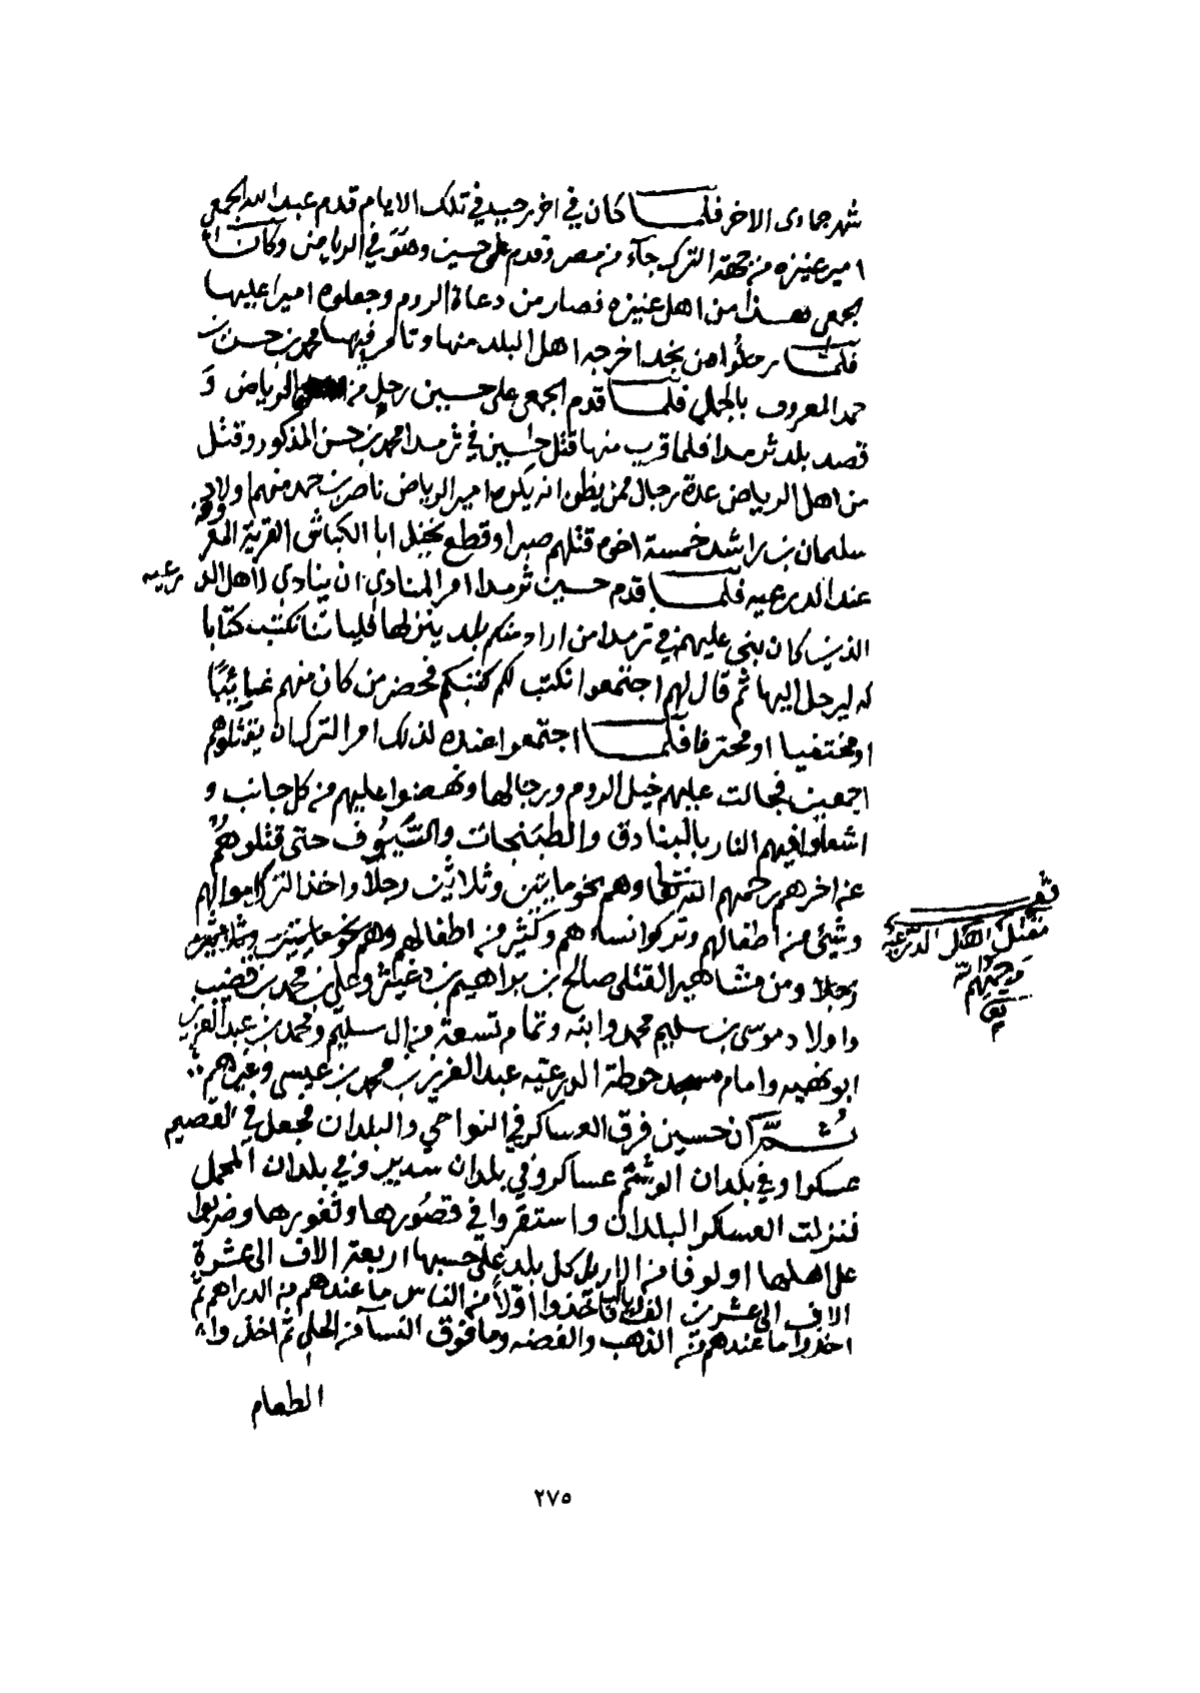 شهر جمادى الاخر فلما كان في اخر رجب في تلك الايام قدم عبدالله الجمعي
امير عنيزه من جهة الترك جآء من مصر وقدم على حسين وهو في الرياض وكان ا
لجمعي هذا من اهل عنيزه فصار من دعاة الروم وجعلوه اميرا عليها
فلما رحلوا من نجد اخرجه اهل البلد منها وتامر فيها محمد بن حسن بن
حمد المعروف بالجملي فلما قدم الجمعي على حسين رحل من الرياض و
قصد بلد ثرمدا فلما قرب منها قتل حسين في ثرمدا محمد بن حسن المذكور وقتل
من اهل الرياض عدة رجال ممن يظن انه يكون امير الرياض ناصر بن حمد منهم اولاد
سلمان بن راشد خمسة اخوه قتلهم صبرا وقطع نخيل ابا الكباش القرية المعروفه
عند الدرعيه فلما قدم حسين ثرمدا امر المنادي ان ينادي لاهل الدرعيه
الذين كان بنى عليهم في ثرمدا من اراد منكم بلد ينزلها فلياتنا نكتب كتابا
له ليرحل اليها ثم قال لهم اجتمعوا نكتب لكم كتبكم فحضر من كان منهم غايئبا
او مختفيا او محترفا فلما اجتمعوا عنده لذلك امر الترك ان يقتلوهم
اجمعين فجالت عليهم خيل الروم ورجالها ونهضوا عليهم من كل جانب و
اشعلوا فيهم النار بالبنادق والطبنجات والسيوف حتى قتلوهم
عن اخرهم رحمهم الله تعالى وهم نحو مايتين وثلاثين رجلا واخذ الترك اموالهم
وشيئ من اطفالهم وتركوا نساءهم وكثير من اطفالهم وهم نحو مايتين وثلاثين
رجلا ومن مشاهير القتلى صالح بن براهيم بن دغيثر وعلي بن محمد بن قضيب
واولاد موسى بن سليم محمد وابنه وتمام تسعة من ال سليم ومحمد بن عبدالعزيز
ابو نهيه وامام مسجد حوطة الدرعيه عبدالعزيز بن محمد بن عيسى وغيرهم
ثم ان حسين فرق العساكر في النواحي والبلدان فجعل في القصيم
عسكرا وفي بلدان الوشم عساكر وفي بلدان سدير وفي بلدان المحمل
فنزلت العسكر البلدان واستقروا في قصورها وثغورها وضربوا
على اهلها الوفا من الاريل كل بلد على حسبها اربعة الاف الى عشرة
الاف الى عشرين الف ريال فاخذوا اولا من الناس ما عندهم من الدراهم ثم
اخذوا ما عندهم من الذهب والفضه وما فوق النسآ من الحلي ثم اخذوا
الطعام
مقتل اهل الدرعيه
رحمهم الله
٢٧٥